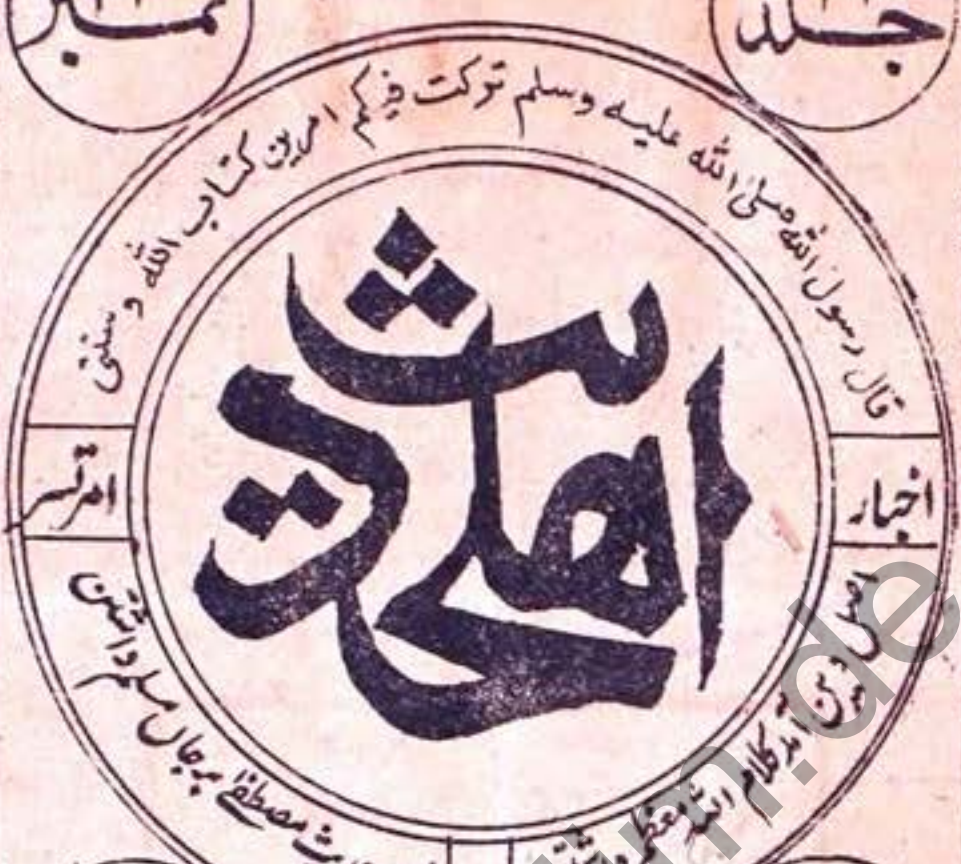 جلد
نمبر
قال رسول الله صلی الله علیه وسلم ترکت فیکم امرین کتاب الله و سنتی
اخبار
اهلحدیث
امرتسر
اصل دین آمد کلام الله معظم داشتن
مصطفیٰ بر جاں مسلم داشتن